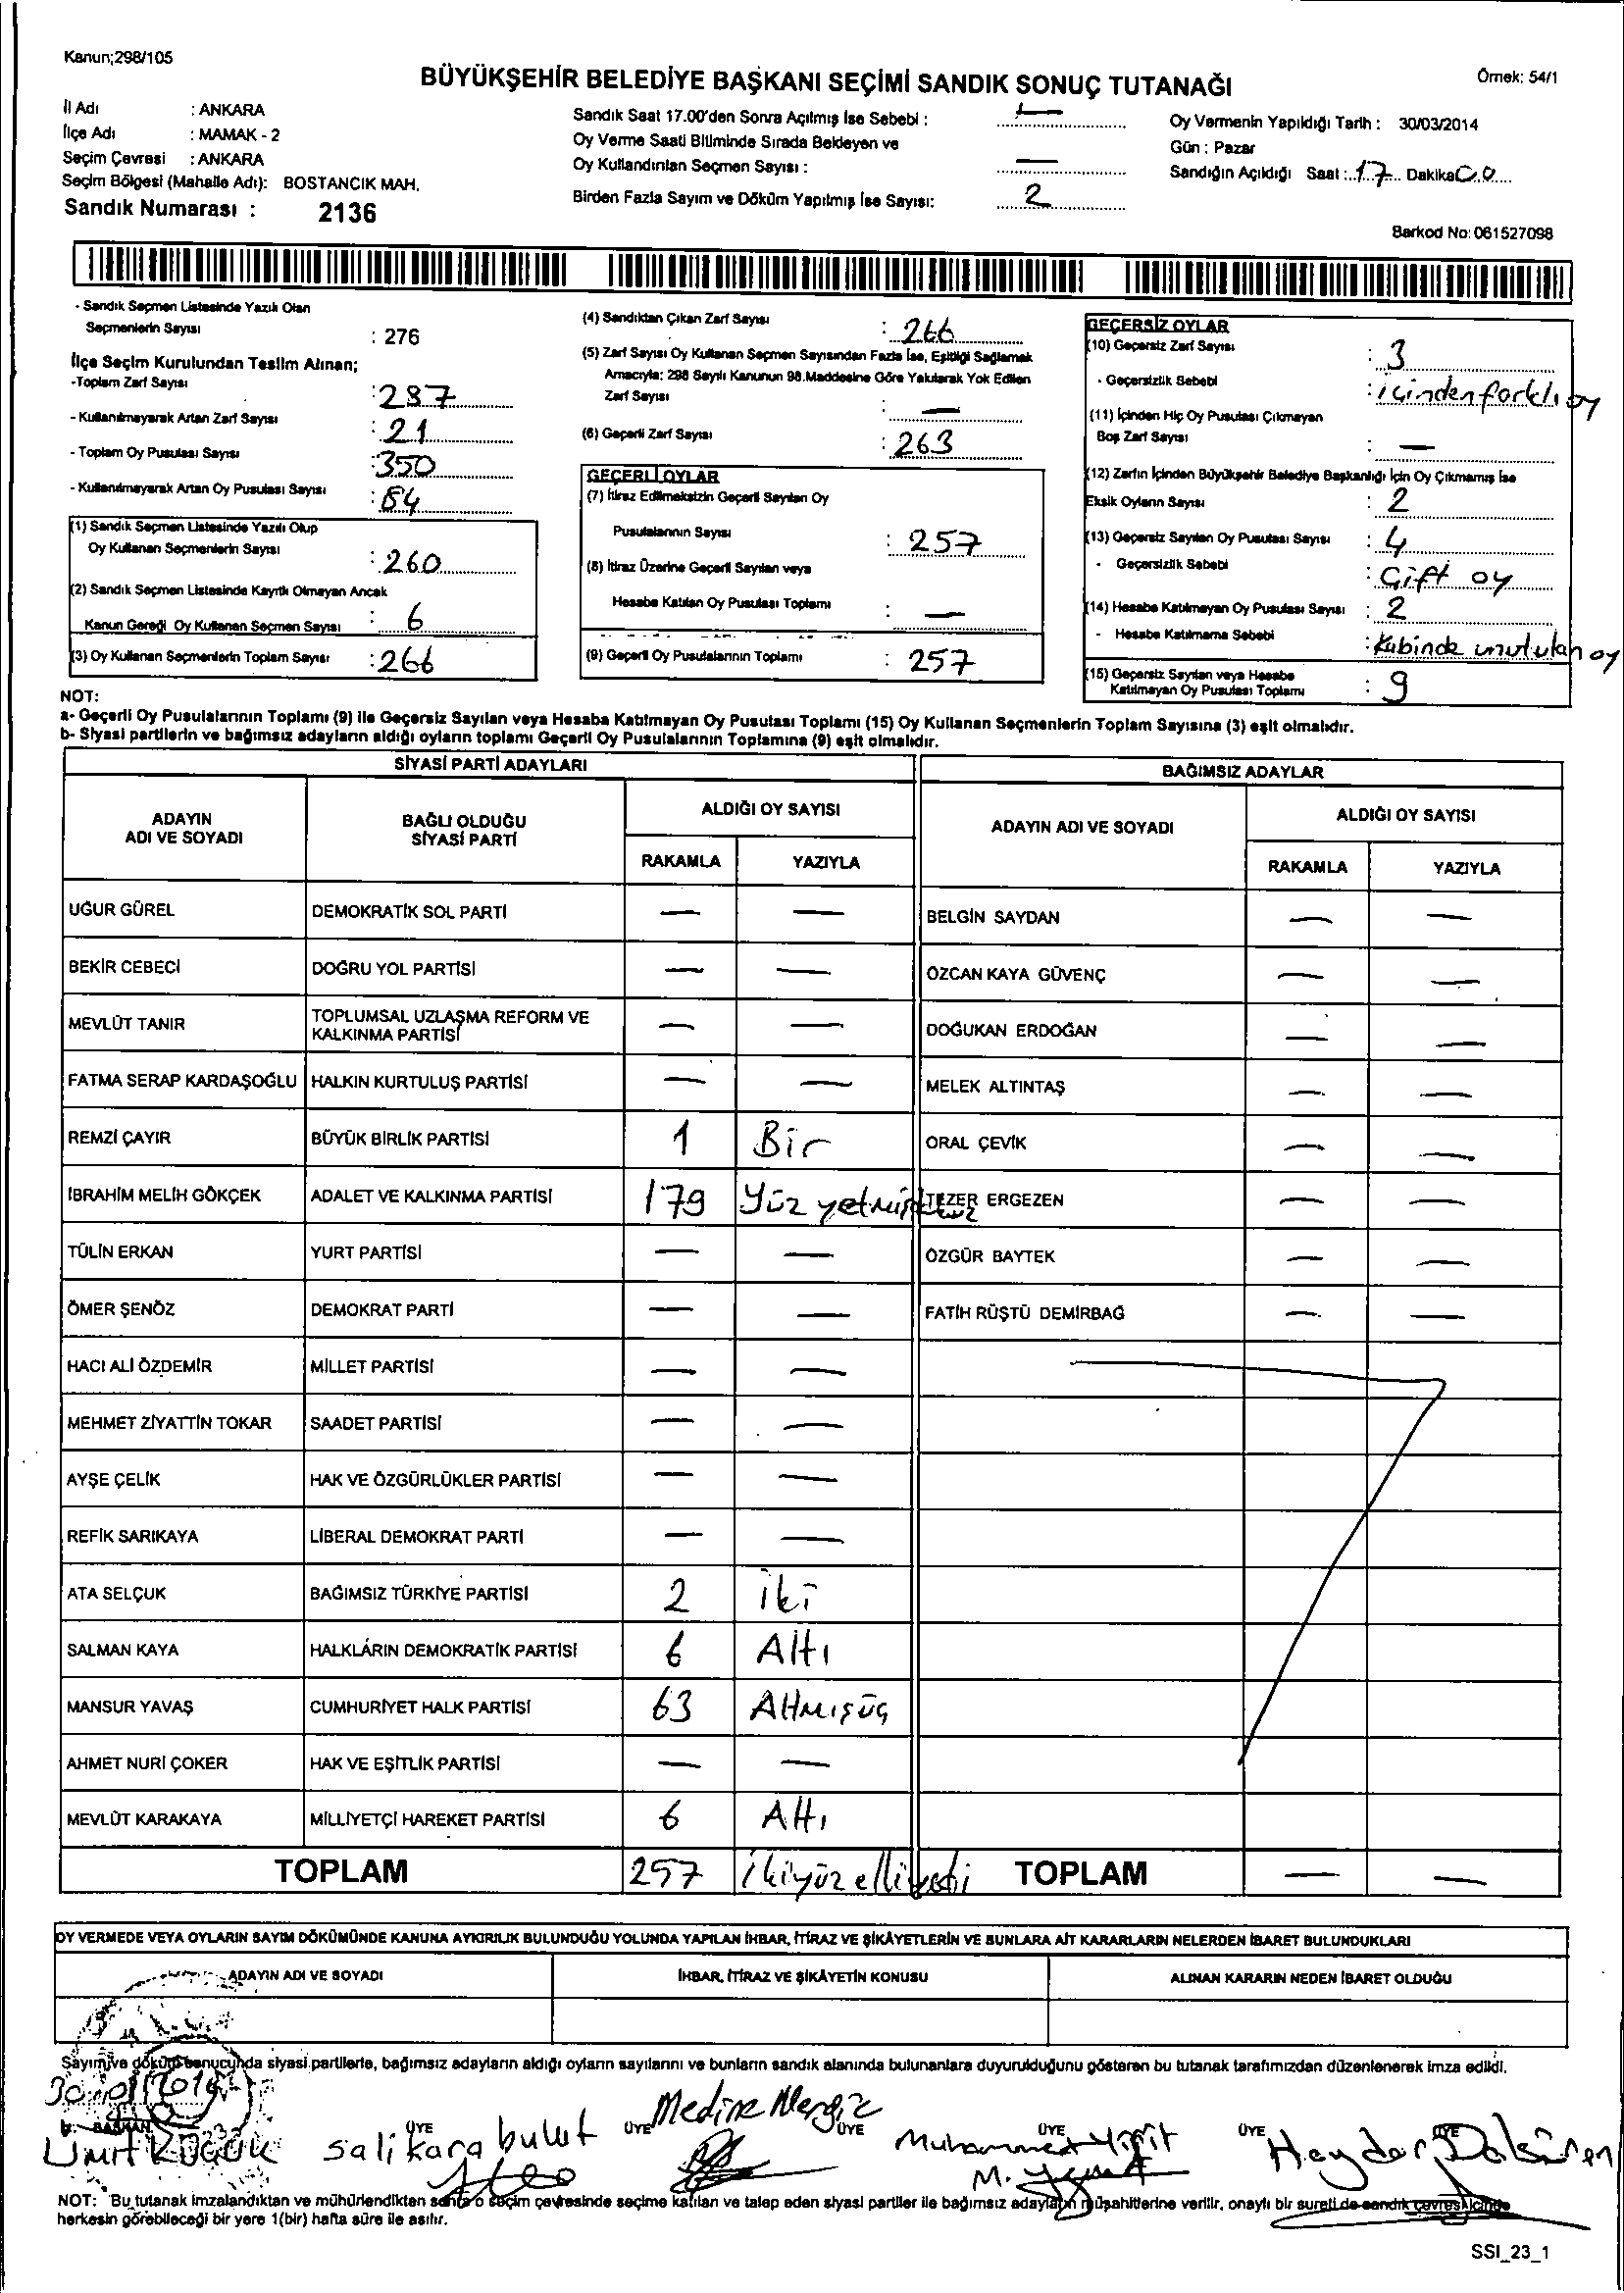 Kanun;298/105
BÜYÜKŞEHİR BELEDİYE BAŞKANI SEÇİMİ SANDIK SONUÇ TUTANAĞI
Örnek: 54/1
İl Adı : ANKARA
İlçe Adı : MAMAK - 2
Seçim Çevresi : ANKARA
Seçim Bölgesi (Mahalle Adı): BOSTANCIK MAH.
Sandık Numarası : 2136
Sandık Saat 17.00'den Sonra Açılmış İse Sebebi : —
Oy Verme Saati Bitiminde Sırada Bekleyen ve
Oy Kullandırılan Seçmen Sayısı : —
Birden Fazla Sayım ve Döküm Yapılmış İse Sayısı: 2
Oy Vermenin Yapıldığı Tarih : 30/03/2014
Gün : Pazar
Sandığın Açıldığı Saat : 17 Dakika 00
Barkod No: 061527098
- Sandık Seçmen Listesinde Yazılı Olan
Seçmenlerin Sayısı : 276
İlçe Seçim Kurulundan Teslim Alınan;
-Toplam Zarf Sayısı : 287
- Kullanılmayarak Artan Zarf Sayısı : 21
- Toplam Oy Pusulası Sayısı : 350
- Kullanılmayarak Artan Oy Pusulası Sayısı : 84
(1) Sandık Seçmen Listesinde Yazılı Olup
Oy Kullanan Seçmenlerin Sayısı : 260
(2) Sandık Seçmen Listesinde Kayıtlı Olmayan Ancak
Kanun Gereği Oy Kullanan Seçmen Sayısı : 6
(3) Oy Kullanan Seçmenlerin Toplam Sayısı : 266
(4) Sandıktan Çıkan Zarf Sayısı : 266
(5) Zarf Sayısı Oy Kullanan Seçmen Sayısından Fazla İse, Eşitliği Sağlamak
Amacıyla; 298 Sayılı Kanunun 98.Maddesine Göre Yakılarak Yok Edilen
Zarf Sayısı : —
(6) Geçerli Zarf Sayısı : 263
GEÇERLİ OYLAR
(7) İtiraz Edilmeksizin Geçerli Sayılan Oy
Pusulalarının Sayısı : 257
(8) İtiraz Üzerine Geçerli Sayılan veya
Hesaba Katılan Oy Pusulası Toplamı : —
(9) Geçerli Oy Pusulalarının Toplamı : 257
GEÇERSİZ OYLAR
(10) Geçersiz Zarf Sayısı : 3
- Geçersizlik Sebebi : içinden farklı oy
(11) İçinden Hiç Oy Pusulası Çıkmayan
Boş Zarf Sayısı : —
(12) Zarfın İçinden Büyükşehir Belediye Başkanlığı İçin Oy Çıkmamış İse
Eksik Oyların Sayısı : 2
(13) Geçersiz Sayılan Oy Pusulası Sayısı : 4
- Geçersizlik Sebebi : Çift oy
(14) Hesaba Katılmayan Oy Pusulası Sayısı : 2
- Hesaba Katılmama Sebebi : Kabinde unutulan oy
(15) Geçersiz Sayılan veya Hesaba
Katılmayan Oy Pusulası Toplamı : 9
NOT:
a- Geçerli Oy Pusulalarının Toplamı (9) ile Geçersiz Sayılan veya Hesaba Katılmayan Oy Pusulası Toplamı (15) Oy Kullanan Seçmenlerin Toplam Sayısına (3) eşit olmalıdır.
b- Siyasi partilerin ve bağımsız adayların aldığı oyların toplamı Geçerli Oy Pusulalarının Toplamına (9) eşit olmalıdır.
SİYASİ PARTİ ADAYLARI
BAĞIMSIZ ADAYLAR
ADAYIN ADI VE SOYADI
BAĞLI OLDUĞU SİYASİ PARTİ
ALDIĞI OY SAYISI
RAKAMLA YAZIYLA
ADAYIN ADI VE SOYADI
ALDIĞI OY SAYISI
RAKAMLA YAZIYLA
UĞUR GÜREL DEMOKRATİK SOL PARTİ — — BELGİN SAYDAN — —
BEKİR CEBECİ DOĞRU YOL PARTİSİ — — ÖZCAN KAYA GÜVENÇ — —
MEVLÜT TANIR TOPLUMSAL UZLAŞMA REFORM VE KALKINMA PARTİSİ — — DOĞUKAN ERDOĞAN — —
FATMA SERAP KARDAŞOĞLU HALKIN KURTULUŞ PARTİSİ — — MELEK ALTINTAŞ — —
REMZİ ÇAYIR BÜYÜK BİRLİK PARTİSİ 1 Bir ORAL ÇEVİK — —
İBRAHİM MELİH GÖKÇEK ADALET VE KALKINMA PARTİSİ 179 Yüz yetmişdokuz TEZER ERGEZEN — —
TÜLİN ERKAN YURT PARTİSİ — — ÖZGÜR BAYTEK — —
ÖMER ŞENÖZ DEMOKRAT PARTİ — — FATİH RÜŞTÜ DEMİRBAĞ — —
HACI ALİ ÖZDEMİR MİLLET PARTİSİ — —
MEHMET ZİYATTİN TOKAR SAADET PARTİSİ — —
AYŞE ÇELİK HAK VE ÖZGÜRLÜKLER PARTİSİ — —
REFİK SARIKAYA LİBERAL DEMOKRAT PARTİ — —
ATA SELÇUK BAĞIMSIZ TÜRKİYE PARTİSİ 2 iki
SALMAN KAYA HALKLARIN DEMOKRATİK PARTİSİ 6 Altı
MANSUR YAVAŞ CUMHURİYET HALK PARTİSİ 63 Altmışüç
AHMET NURİ ÇOKER HAK VE EŞİTLİK PARTİSİ — —
MEVLÜT KARAKAYA MİLLİYETÇİ HAREKET PARTİSİ 6 Altı
TOPLAM 257 ikiyüz elliyedi TOPLAM — —
OY VERMEDE VEYA OYLARIN SAYIM DÖKÜMÜNDE KANUNA AYKIRILIK BULUNDUĞU YOLUNDA YAPILAN İHBAR, İTİRAZ VE ŞİKÂYETLERİN VE BUNLARA AİT KARARLARIN NELERDEN İBARET BULUNDUKLARI
ADAYIN ADI VE SOYADI İHBAR, İTİRAZ VE ŞİKÂYETİN KONUSU ALINAN KARARIN NEDEN İBARET OLDUĞU
Sayım ve döküm sonucunda siyasi partilerle, bağımsız adayların aldığı oyların sayılarını ve bunların sandık alanında bulunanlara duyurulduğunu gösteren bu tutanak tarafımızdan düzenlenerek imza edildi.
BAŞKAN ÜYE ÜYE ÜYE ÜYE ÜYE ÜYE
Ümit Küçük Sali Karabulut Medine Nergiz Muhammed Yiğit Haydar
NOT: Bu tutanak imzalandıktan ve mühürlendikten sonra o seçim çevresinde seçime katılan ve talep eden siyasi partiler ile bağımsız adayların müşahitlerine verilir, onaylı bir sureti de sandık çevresi içinde
herkesin görebileceği bir yere 1(bir) hafta süre ile asılır.
SSI_23_1